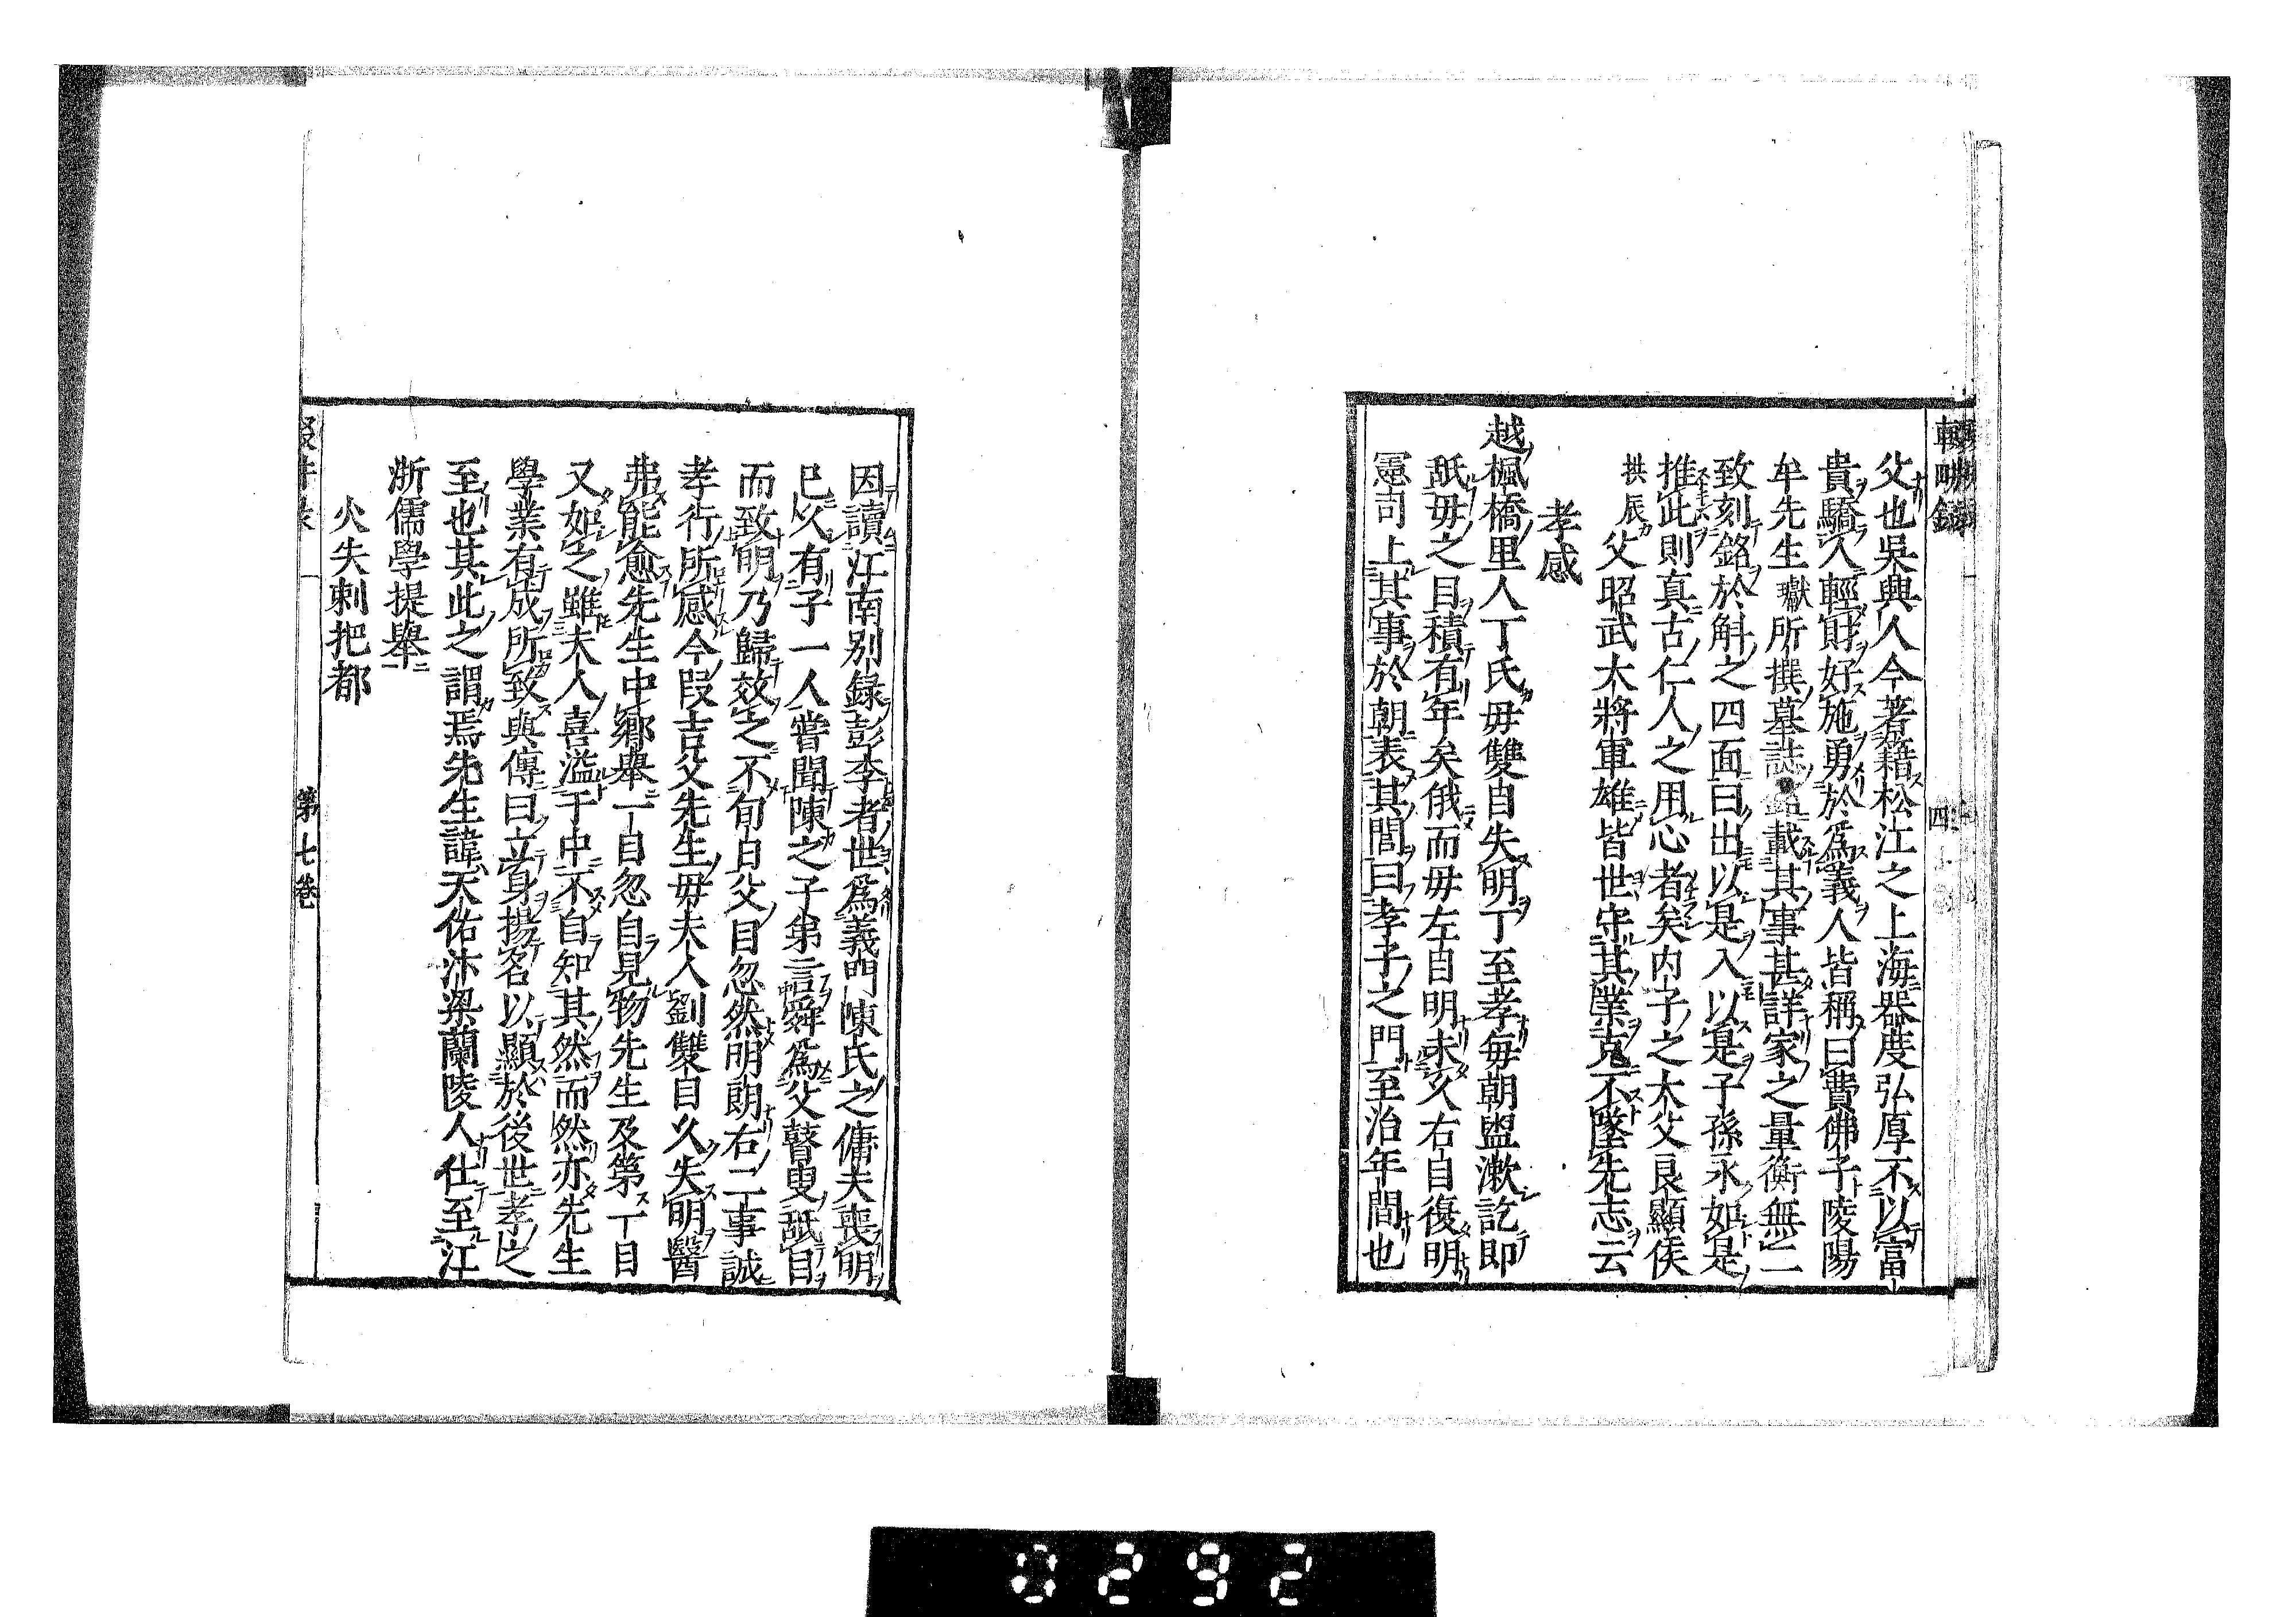 輟畊錄
四
父也吳興人今著籍松江之上海器度弘厚不以富
貴驕人輕財好施勇於爲義人皆稱曰費佛子陵陽
牟先生巘所撰墓誌載其事甚詳家之量衡無二
致刻銘於斛之四面曰出以是入以是子孫永如是
推此則真古仁人之用心者矣内子之大父良顯侯
拱辰父昭武大將軍雄皆世守其業克不墜先志云
孝感
越楓橋里人丁氏母雙目失明丁至孝每朝盥漱訖即
舐母之目積有年矣俄而母左目明未久右目復明
憲司上其事於朝表其閭曰孝子之門至治年間也
因讀江南别錄彭李者世爲義門陳氏之傭夫喪明
已久有子一人嘗聞陳之子弟言舜爲父瞽叟舐目
而致明乃歸效之不旬日父目忽然明朗右二事誠
孝行所感今段吉父先生母夫人劉雙目久失明醫
弗能愈先生中鄉舉一目忽自見物先生及第一目
又如之雖夫人喜溢于中不自知其然而然亦先生
學業有成所致與傳曰立身揚名以顯於後世孝之
至也其此之謂焉先生諱天佑汴梁蘭陵人仕至江
浙儒學提舉
火失剌把都
第七卷
0292